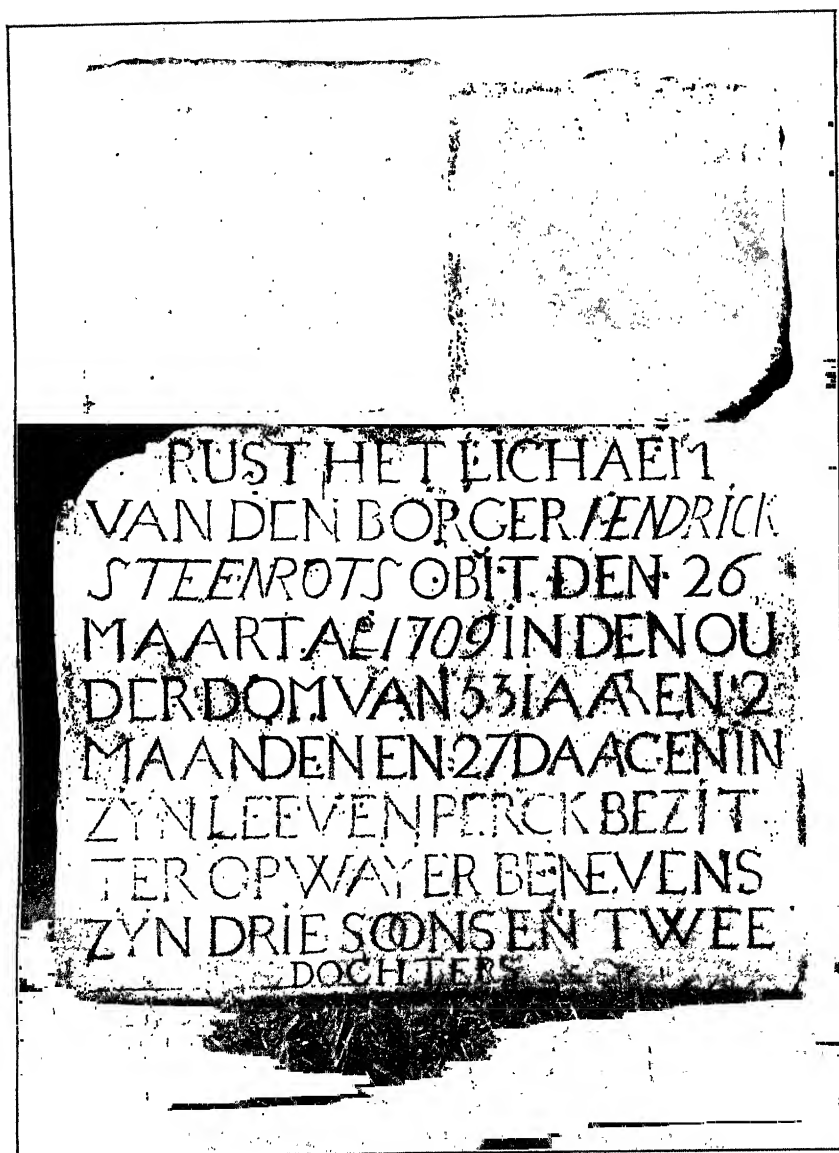 RUST HET LICHAEM
VAN DEN BORGER HENDRICK
STEENROTS OBIT DEN 26
MAART. Ao 1709 IN DEN OU
DERDOM VAN 53 IAAREN 2
MAANDEN EN 27 DAAGEN IN
ZYN LEEVEN PERCK BEZIT
TER OP WAYER BENEVENS
ZYN DRIE SOONS EN TWEE
DOCHTERS